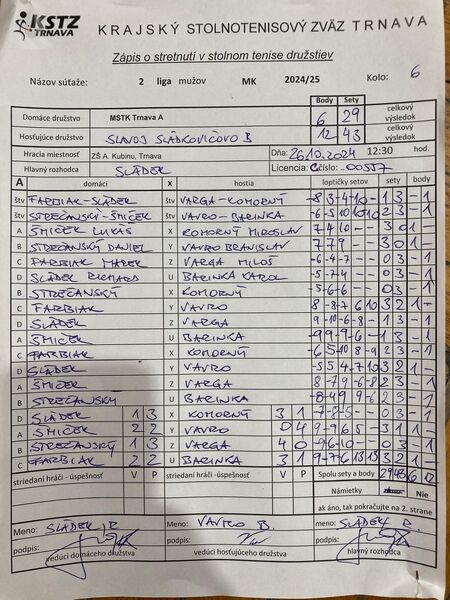 KSTZ TRNAVA
KRAJSKÝ STOLNOTENISOVÝ ZVÄZ TRNAVA
Zápis o stretnutí v stolnom tenise družstiev
Názov súťaže: 2 liga mužov MK 2024/25 Kolo: 6
Body Sety
Domáce družstvo MSTK Trnava A 6 29 celkový výsledok
Hosťujúce družstvo SLAVOJ SLÁDKOVIČOVO B 12 43 celkový výsledok
Hracia miestnosť ZŠ A. Kubinu, Trnava Dňa: 26.10.2024 12:30 hod.
Hlavný rozhodca SLÁDEK Licencia: C číslo: 00557
A domáci X hostia loptičky setov sety body
štv FARBIAK-SLÁDEK štv VARGA-KOMORNÝ -8 3 -4 -10 - 1 3 - 1
štv STREČANSKÝ-ŠMIČEK štv VAVRO-BARINKA 2 3 - 1
A ŠMIČEK LUKÁŠ X KOMORNÝ MIROSLAV 7 4 10 - - 3 0 1 -
B STREČANSKÝ DANIEL Y VAVRO BRANISLAV 7 7 9 - - 3 0 1 -
C FARBIAK MAREK Z VARGA MILOŠ -6 -4 -7 - - 0 3 - 1
D SLÁDEK RICHARD U BARINKA KAROL -5 -7 -4 - - 0 3 - 1
B STREČANSKÝ X KOMORNÝ -5 -6 -6 - - 0 3 - 1
C FARBIAK Y VAVRO 8 -8 -7 6 10 3 2 1 -
D SLÁDEK Z VARGA 9 -10 -6 -8 - 1 3 - 1
A ŠMIČEK U BARINKA -9 9 -9 -6 - 1 3 - 1
C FARBIAK X KOMORNÝ -6 5 10 8 -9 2 3 - 1
D SLÁDEK Y VAVRO -5 5 4 -7 10 3 2 1 -
A ŠMIČEK Z VARGA 8 -7 9 -6 -8 2 3 - 1
B STREČANSKÝ U BARINKA -8 4 9 9 6 2 3 - 1
D SLÁDEK 1 3 X KOMORNÝ 3 1 -7 -8 -5 - - 0 3 - 1
A ŠMIČEK 2 2 Y VAVRO 0 4 9 -9 6 5 - 3 1 1 -
B STREČANSKÝ 1 3 Z VARGA 4 0 -9 -6 -10 - - 0 3 - 1
C FARBIAK 2 2 U BARINKA 3 1 9 -7 -6 13 13 3 2 1 -
striedaní hráči - úspešnosť V P striedaní hráči - úspešnosť V P Spolu sety a body 29 43 6 12
Námietky Nie
ak áno, tak pokračujte na 2. strane
Meno: SLÁDEK R. Meno: VAVRO B. Meno: SLÁDEK R.
podpis: podpis: podpis:
vedúci domáceho družstva vedúci hosťujúceho družstva hlavný rozhodca